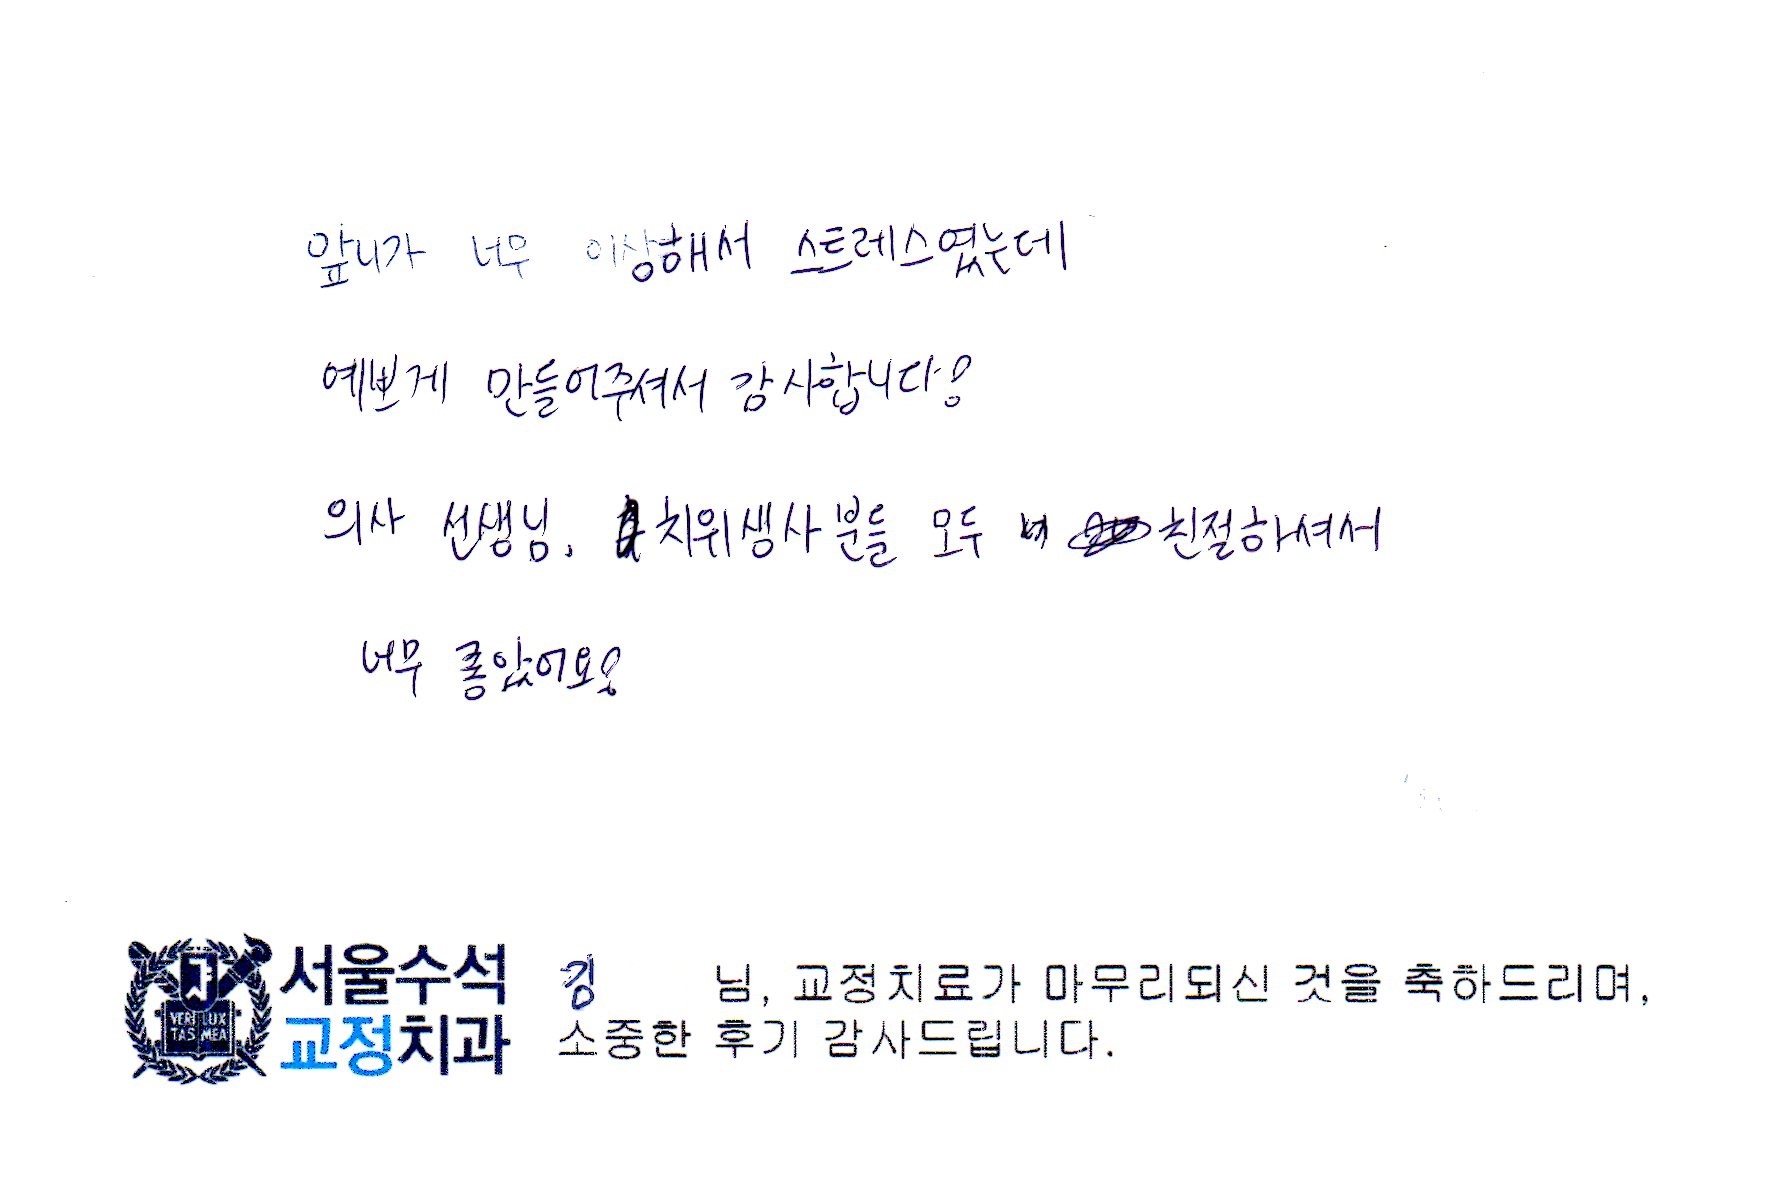 앞니가 너무 이상해서 스트레스였는데
예쁘게 만들어주셔서 감사합니다!
의사 선생님, 치위생사분들 모두 친절하셔서
너무 좋았어요!
서울수석
교정치과
VERI LUX
TAS MEA
김 님, 교정치료가 마무리되신 것을 축하드리며,
소중한 후기 감사드립니다.